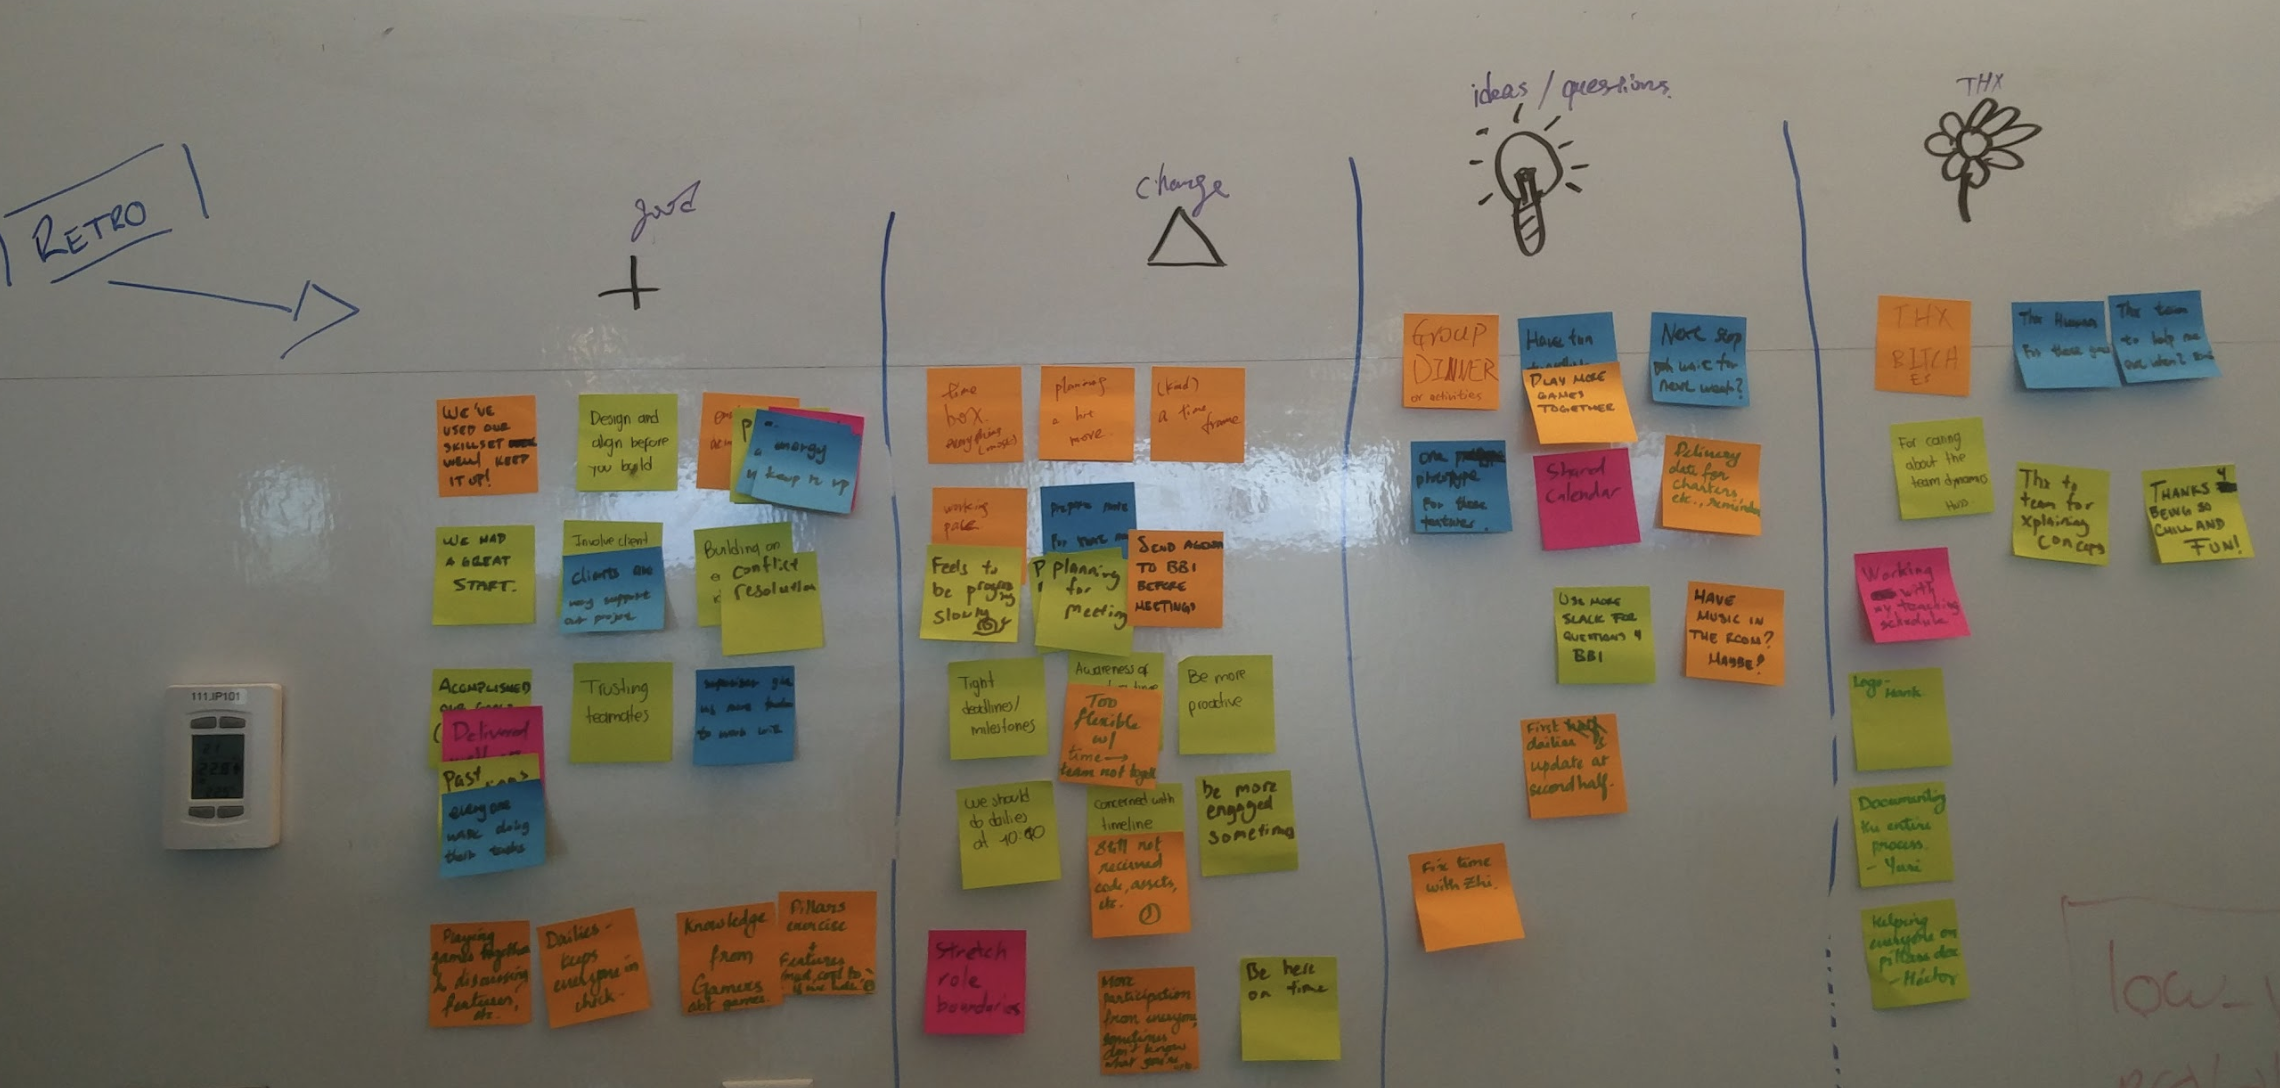 RETRO
good
+
WE'VE
USED OUR
SKILLSET
WELL! KEEP
IT UP!
Design and
align before
you build
energy
keep it up
WE HAD
A GREAT
START.
Involve client
clients are
very support
our project
Building on
conflict
resolution
ACOMPLISHED
OUR GOALS
Delivered
Past
everyone
were doing
their tasks
Trusting
teammates
supervisor give
us more
to work with
Playing
games together
& discussing
features,
etc.
Dailies -
keeps
everyone in
check.
Knowledge
from
Gamers
abt games.
Pillars
exercise
+
Features
change
time
box
everything
planning
a bit
more.
(kind)
a time
frame
working
pace
Feels to
be progressing
slowly
prepare more
for
planning
for
meeting
SEND AGENDA
TO BBI
BEFORE
MEETINGS
Tight
deadlines/
milestones
Awareness of
Too
flexible
w/
time →
team not togeth
Be more
proactive
We should
do dailies
at 10:
Concerned with
timeline
Still not
received
code, assets,
etc.
be more
engaged
sometimes
Stretch
role
boundaries
More
participation
from everyone,
sometimes
don't know
what you're
Be here
on time
ideas / questions.
GROUP
DINNER
or activities
Have fun
PLAY MORE
GAMES
TOGETHER
Next step
work for
next week?
one
prototype
for these
features.
Shared
Calendar
Delivery
date for
charters
etc., reminder
USE MORE
SLACK FOR
QUESTIONS 4
BBI
HAVE
MUSIC IN
THE ROOM?
MAYBE?
First half
dailies
update at
second half.
Fix time
with Zhi.
THX
THX
BITCH
ES
Thx Human
For these
Thx team
to help me
For caring
about the
team dynamics
Thx to
team for
xplaining
concepts
THANKS 4
BEING SO
CHILL AND
FUN!
Working
with
my teaching
schedule
Logo-
Hank
Documenting
the entire
process.
- Yuni
Helping
everyone on
pillars doc
- Héctor
111.JP101
low_